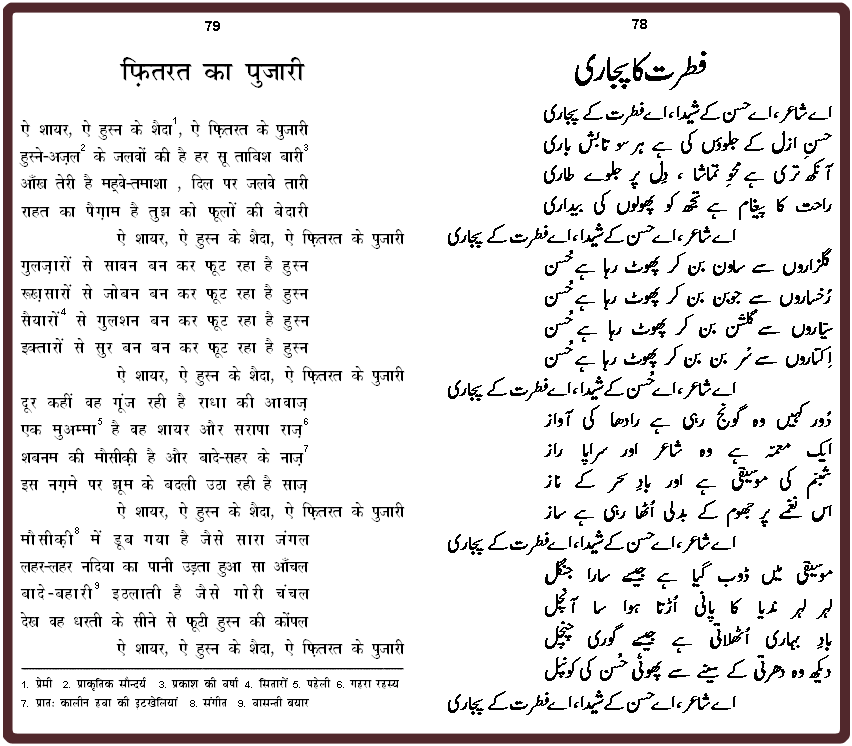 79
फ़ितरत का पुजारी
ऐ शायर, ऐ हुस्न के शैदा1, ऐ फ़ितरत के पुजारी
हुस्ने-अज़ल2 के जलवों की है हर सू ताबिश बारी3
आँख तेरी है मह्वे-तमाशा , दिल पर जलवे तारी
राहत का पैग़ाम है तुझ को फूलों की बेदारी
ऐ शायर, ऐ हुस्न के शैदा, ऐ फ़ितरत के पुजारी
गुलज़ारों से सावन बन कर फूट रहा है हुस्न
रुख़सारों से जोबन बन कर फूट रहा है हुस्न
सैयारों4 से गुलशन बन कर फूट रहा है हुस्न
इक्तारों से सुर बन बन कर फूट रहा है हुस्न
ऐ शायर, ऐ हुस्न के शैदा, ऐ फ़ितरत के पुजारी
दूर कहीं वह गूंज रही है राधा की आवाज़
एक मुअम्मा5 है वह शायर और सरापा राज़6
शबनम की मौसीक़ी है और बादे-सहर के नाज़7
इस नग़मे पर झूम के बदली उठा रही है साज़
ऐ शायर, ऐ हुस्न के शैदा, ऐ फ़ितरत के पुजारी
मौसीक़ी8 में डूब गया है जैसे सारा जंगल
लहर-लहर नदिया का पानी उड़ता हुआ सा आँचल
बादे-बहारी9 इठलाती है जैसे गोरी चंचल
देख वह धरती के सीने से फूटी हुस्न की कोंपल
ऐ शायर, ऐ हुस्न के शैदा, ऐ फ़ितरत के पुजारी
1. प्रेमी 2. प्राकृतिक सौन्दर्य 3. प्रकाश की वर्षा 4. सितारों 5. पहेली 6. गहरा रहस्य
7. प्रातः कालीन हवा की इटखेलियां 8. संगीत 9. बासन्ती बयार
78
فطرت کا پجاری
اے شاعر، اے حسن کے شیدا، اے فطرت کے پجاری
حسنِ ازل کے جلوؤں کی ہے ہر سو تابش باری
آنکھ تری ہے محوِ تماشا ، دِل پر جلوے طاری
راحت کا پیغام ہے تجھ کو پھولوں کی بیداری
اے شاعر، اے حسن کے شیدا، اے فطرت کے پجاری
گلزاروں سے ساون بن کر پھوٹ رہا ہے حُسن
رُخساروں سے جوبن بن کر پھوٹ رہا ہے حُسن
سیّاروں سے گلشن بن کر پھوٹ رہا ہے حُسن
اِکتاروں سے سُر بن بن کر پھوٹ رہا ہے حُسن
اے شاعر، اے حُسن کے شیدا، اے فطرت کے پجاری
دُور کہیں وہ گونج رہی ہے رادھا کی آواز
ایک معمّہ ہے وہ شاعر اور سراپا راز
شبنم کی موسیقی ہے اور بادِ سحر کے ناز
اس نغمے پر جھوم کے بدلی اُٹھا رہی ہے ساز
اے شاعر، اے حسن کے شیدا، اے فطرت کے پجاری
موسیقی میں ڈوب گیا ہے جیسے سارا جنگل
لہر لہر ندیا کا پانی اُڑتا ہوا سا آنچل
بادِ بہاری اُٹھلاتی ہے جیسے گوری چنچل
دیکھ وہ دھرتی کے سینے سے پھوٹی حُسن کی کونپل
اے شاعر، اے حسن کے شیدا، اے فطرت کے پجاری